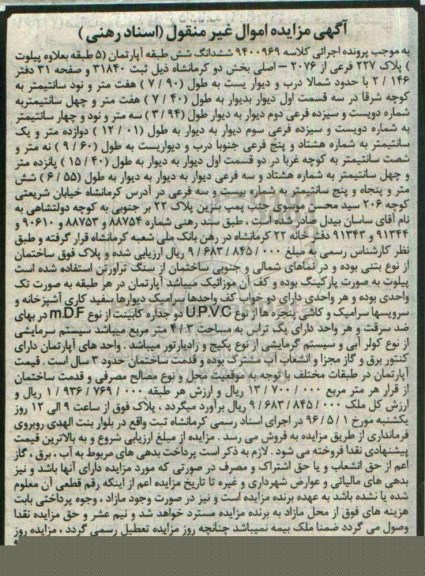 آگهی مزایده اموال غیر منقول (اسناد رهنی)
به موجب پرونده اجرائی کلاسه ۹۴۰۰۹۶۹ ششدانگ شش طبقه آپارتمان (۵ طبقه بعلاوه پیلوت
) پلاک ۲۲۷ فرعی از ۲۰۷۶ - اصلی بخش دو کرمانشاه ذیل ثبت ۳۱۸۴۰ و صفحه ۳۱ دفتر
۱۴۶ / ۲ با حدود شمالا درب و دیوار یست به طول (۹۰ / ۷) هفت متر و نود سانتیمتر به
کوچه شرقا در سه قسمت اول دیوار بدیوار به طول (۴۰ / ۷) هفت متر و چهل سانتیمتربه
شماره دویست و سیزده فرعی دوم دیوار به دیوار به طول (۹۴ / ۳) سه متر و نود و چهار سانتیمتر
به شماره دویست و سیزده فرعی سوم دیوار به دیوار به طول (۰۱ / ۱۲) دوازده متر و یک
سانتیمتر به شماره هشتاد و پنج فرعی جنوبا درب و دیواریست به طول (۶۰ / ۹) نه متر و
شصت سانتیمتر به کوچه غربا در دو قسمت اول دیوار به دیوار به طول (۴۰ / ۱۵) پانزده متر
و چهل سانتیمتر به شماره هشتاد و سه فرعی دیوار به دیوار به دیوار به طول (۵۵ / ۶) شش
متر و پنجاه و پنج سانتیمتر به شماره بیست و سه فرعی در آدرس کرمانشاه خیابان شریعتی
کوچه ۲۰۶ سید محسن موسوی جنب پمپ بنزین پلاک ۲۲ بر جنوبی به کوچه دولتشاهی به
نام آقای ساسان بیدل صادر شده است . طبق سند رهنی شماره ۸۸۷۵۴ و ۸۸۷۵۳ و ۹۰۶۱۰ و
۹۱۳۴۴ و ۹۱۳۴۳ دفتر خانه ۲۲ کرمانشاه در رهن بانک ملی شعبه کرمانشاه قرار گرفته و طبق
نظر کارشناس رسمی به مبلغ ۰۰۰ / ۸۴۵ / ۶۸۳ / ۹ ریال ارزیابی شده و پلاک فوق ساختمان
از نوع بتنی بوده و در نماهای شمالی و جنوبی ساختمان از سنگ تراورتن استفاده شده است
پیلوت به صورت پارکینگ بوده و کف آن موزائیک میباشد آپارتمان در هر طبقه به صورت تک
واحدی بوده و هر واحدی دارای دو خواب کف واحدها سرامیک دیوارها سفید کاری آشپزخانه و
سرویسها سرامیک و کاشی پنجره ها از نوع UPVC دو جداره کابینت از نوع mDF در بهای
ضد سرقت و هر واحد دارای یک تراس به مساحت ۴/۳ متر مربع میباشد سیستم سرمایشی
از نوع کولر آبی و سیستم گرمایشی از نوع پکیج و رادیارتور میباشد . واحد های آپارتمان دارای
کنتور برق و گاز مجزا و انشعاب آب مشترک بوده و قدمت ساختمان حدود ۳ سال است . قیمت
آپارتمان در طبقات مختلف با توجه به موقعیت محل و نوع مصالح مصرفی و قدمت ساختمان
از قرار هر متر مربع ۰۰۰ / ۷۰۰ / ۱۳ ریال و ارزش هر طبقه ۰۰۰ / ۷۶۹ / ۹۳۶ / ۱ ریال و
ارزش کل ملک ۰۰۰ / ۸۴۵ / ۶۸۳ / ۹ ریال برآورد میگردد ، پلاک فوق از ساعت ۹ الی ۱۲ روز
یکشنبه مورخ ۱ / ۵ / ۹۶ در اجرای اسناد رسمی کرمانشاه ثبت واقع در بلوار بنت الهدی روبروی
فرمانداری از طریق مزایده به فروش می رسد . مزایده از مبلغ ارزیابی شروع و به بالاترین قیمت
پیشنهادی نقدا فروخته می شود . لازم به ذکر است پرداخت بدهی های مربوط به آب ، برق ، گاز
اعم از حق انشعاب و یا حق اشتراک و مصرف در صورتی که مورد مزایده دارای آنها باشد و نیز
بدهی های مالیاتی و عوارض شهرداری و غیره تا تاریخ مزایده اعم از اینکه رقم قطعی آن معلوم
شده یا نشده باشد به عهده برنده مزایده است و نیز در صورت وجود مازاد ، وجوه پرداختی بابت
هزینه های فوق از محل مازاد به برنده مزایده مسترد خواهد شد و نیم عشر و حق مزایده نقدا
وصول می گردد ضمنا ملک بیمه نمیباشد چنانچه روز مزایده تعطیل رسمی گردد ، مزایده روز